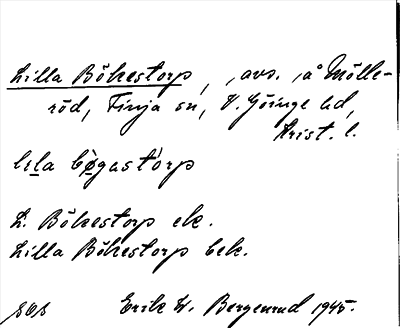 Lilla Bökestorp, , avs. , å Mölle-
röd, Finja sn, V. Göinge hd,
Krist. l.
lila bøgastorp
L. Bökestorp ek.
Lilla Bökestorp bek.
Erik W. Bergenrud 1945.